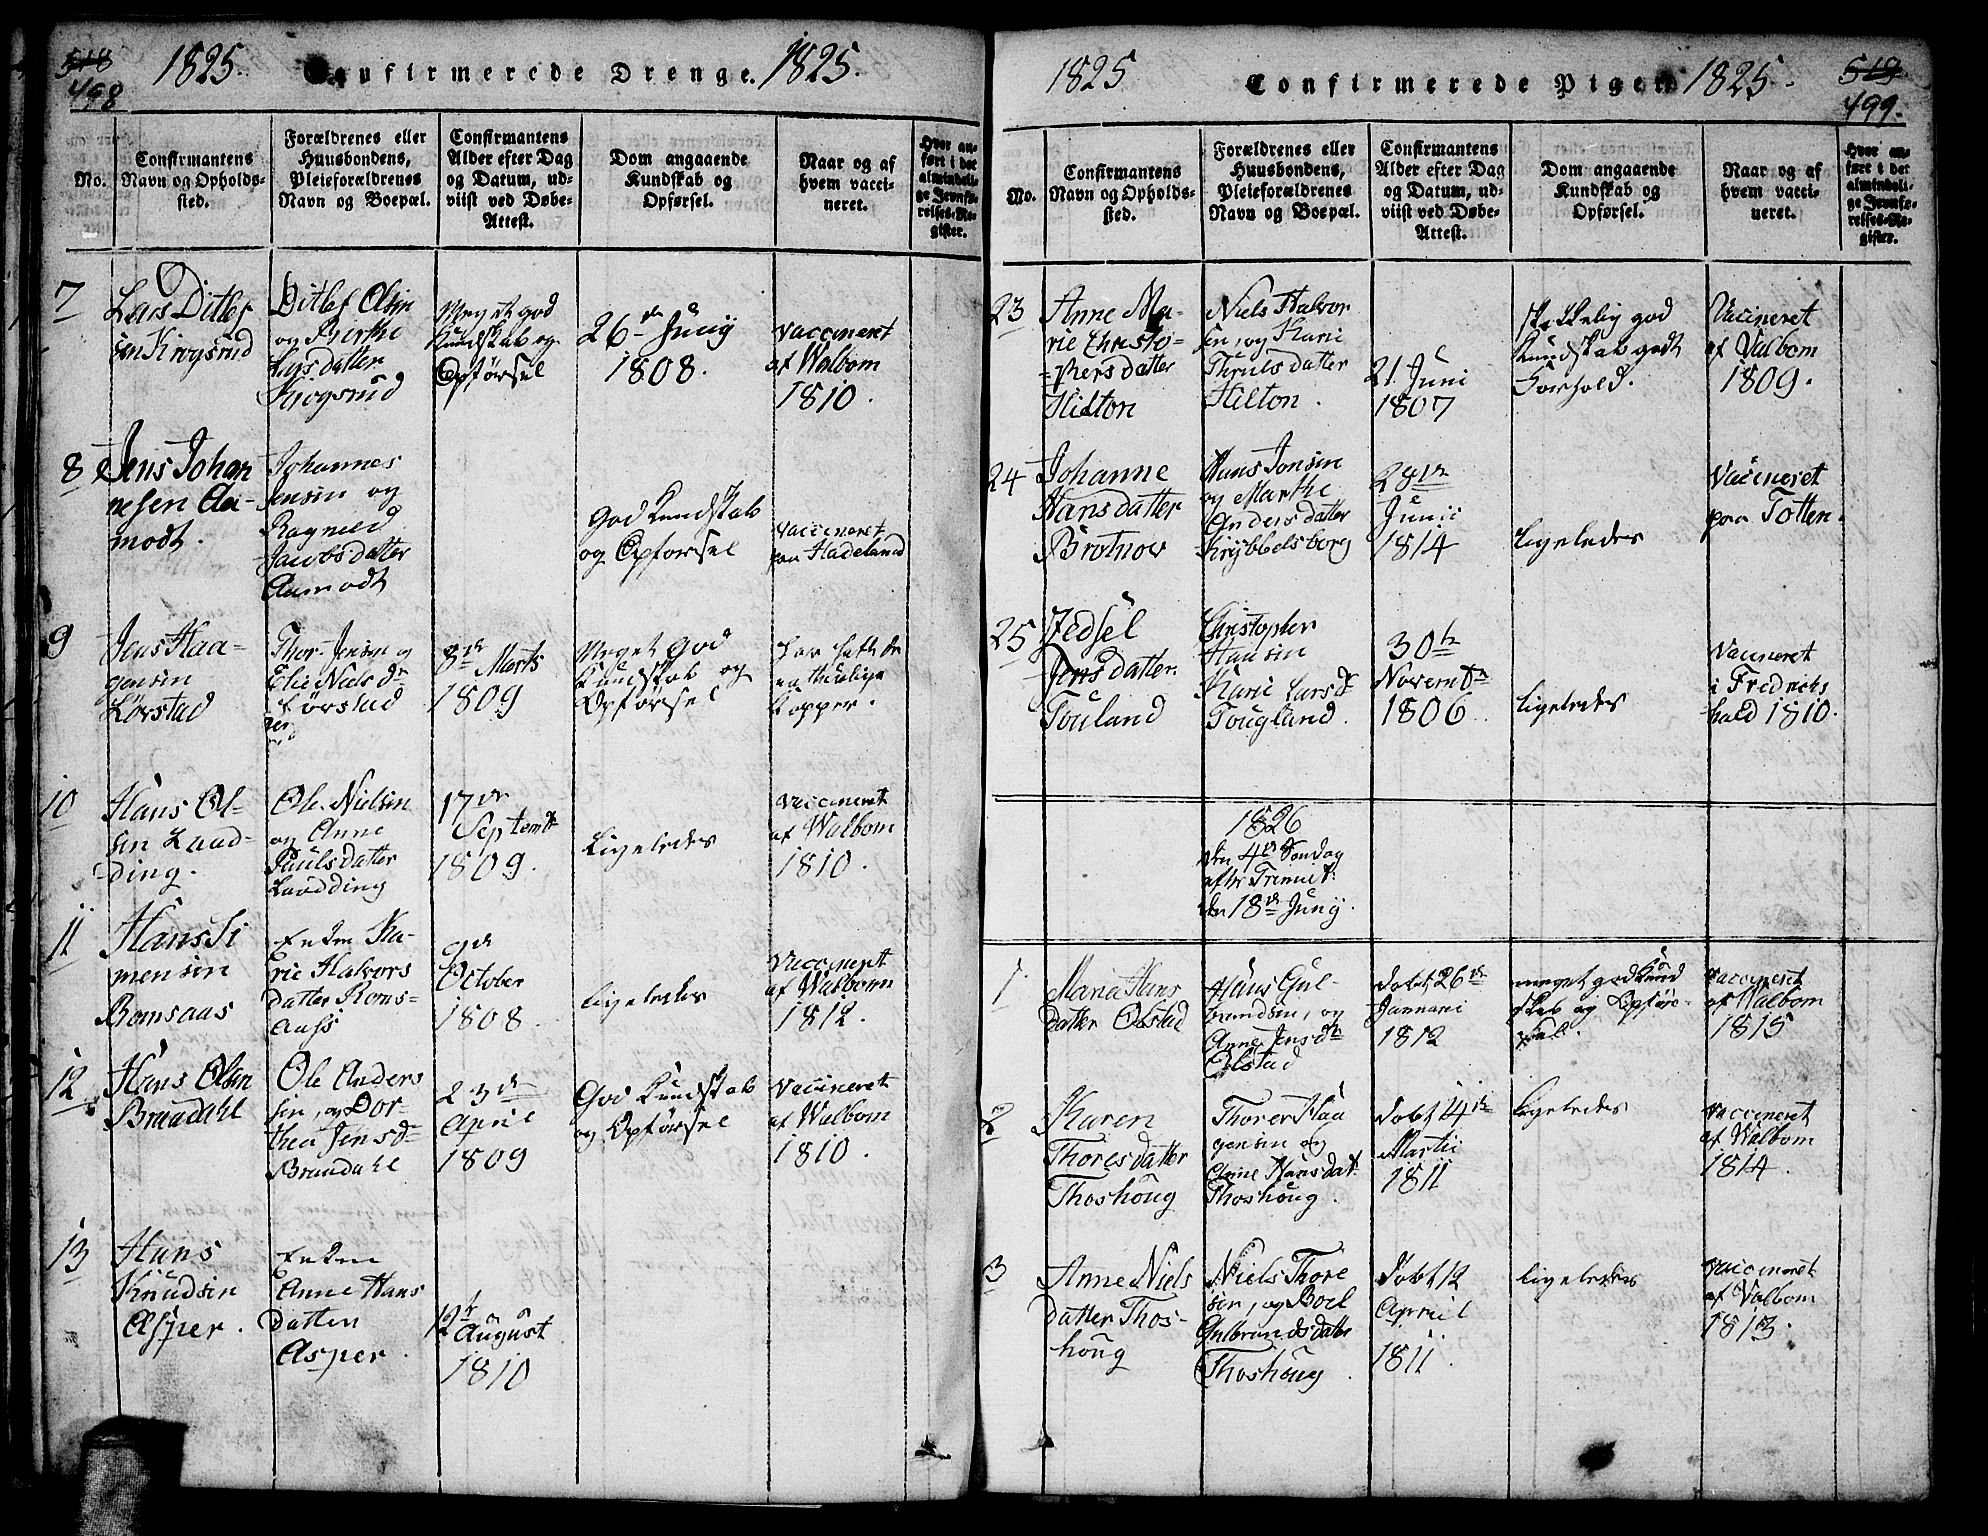 518
498
1825.
Confirmerede Drenge.
1825.
No.
Confirmantens
Navn og Opholds-
sted.
Forældrenes eller
Huusbondens,
Pleieforældrenes
Navn og Boepæl.
Confirmantens
Alder efter Dag
og Datum, ud-
viist ved Døbe-
Attest.
Dom angaaende
Kundskab og
Opførsel.
Naar og af
hvem vacci-
neret.
Hvor an-
ført i det
almindeli-
ge Jevnfø-
relses-Re-
gister.
7
Lars Ditlef
sen Krogsrud
Ditlef Olsen
og Berthe
Larsdatter
Krogsrud
Meget god
Kundskab og
Opførsel
26de Junij
1808.
vaccineret
af Walbom
1810.
8
Jens Johan
nesen Aa-
modt.
Johannes
Jensen og
Ragnild
Jacobsdatter
Aamodt
God Kundskab
og Opførsel
vaccineret
paa Hadeland
9
Jens Haa-
gensen
Lørstad
Thor Jensen og
Elie Nielsdr
Lørstad
8de Marts
1809
Meget God
Kundskab og
Opførsel
har hatt de
naturlige
Kopper.
10
Hans Ol-
sen Laud-
ding.
Ole Nielsen
og Anne
Paulsdatter
Laudding
17de
Septembr
1809.
Ligeledes
vaccineret
af Walbom
1810.
11
Hans Si
mensen
Romsaas
Enken Ka-
rie Halvors
datter Roms-
aas
9de
October
1808.
ligeledes
vaccineret
af Walbom
1812.
12
Hans Olsen
Braadahl
Ole Anders
sen, og Dor-
thea Jensdr
Braadahl
23de
April
1809
God Kundskab
og Opførsel
vaccineret
af Walbom
1810.
13
Hans
Knudsen
Asper.
Enken
Anne Hans
datter
Asper.
12te August
1810
1825
Confirmerede Piger.
1825.
519
499.
No.
Confirmantens
Navn og Opholds-
sted.
Forældrenes eller
Huusbondens,
Pleieforældrenes
Navn og Boepæl.
Confirmantens
Alder efter Dag
og Datum, ud-
viist ved Døbe-
Attest.
Dom angaaende
Kundskab og
Opførsel.
Naar og af
hvem vacci-
neret.
Hvor an-
ført i det
almindeli-
ge Jevnfø-
relses-Re-
gister.
23
Anne Ma-
rie Christo-
phersdatter
Hilton
Niels Halvor
sen, og Kari
Thrulsdatter
Hilton.
21. Juni
1807
skikkelig god
Kundskab godt
Forhold.
Vaccineret
af Valbom
1809.
24
Johanne
Hansdatter
Brotnov
Hans Jonsen
og Marthe
Andersdatter
Krybbelsborg
28de
Junii
1814
ligeledes
Vaccineret
paa Totten.
25
Zedsel
Jensdatter
Touland
Christopher
Hansen
Kari Larsdr
Tougland.
30te
Novembr
1806.
ligeledes
Vaccineret
i Fredrichs
hald 1810.
1826
den 4de Søndag
efter Trinit:
den 18de Junij.
1.
Maria Hans
datter Olstad
Hans Gul-
brandsen, og
Anne Jensdr
Olstad
døbt 26de
Januarii
1812
meget god Kund
skab og Opfør-
sel.
vaccineret
af Walbom
1815
2
Karen
Thoresdatter
Thoshoug
Thorer Haa
gensen og
Anne Hansdat
Thoshoug.
døbt 4de
Martii
1811
ligeledes
vaccineret
af Walbom
1814.
3
Anne Niels
datter Thos-
houg
Niels Thore
sen, og Boel
Gulbrandsdatter
Thoshoug.
døbt 12
April
1811.
ligeledes
vaccineret
af Walbom
1813.